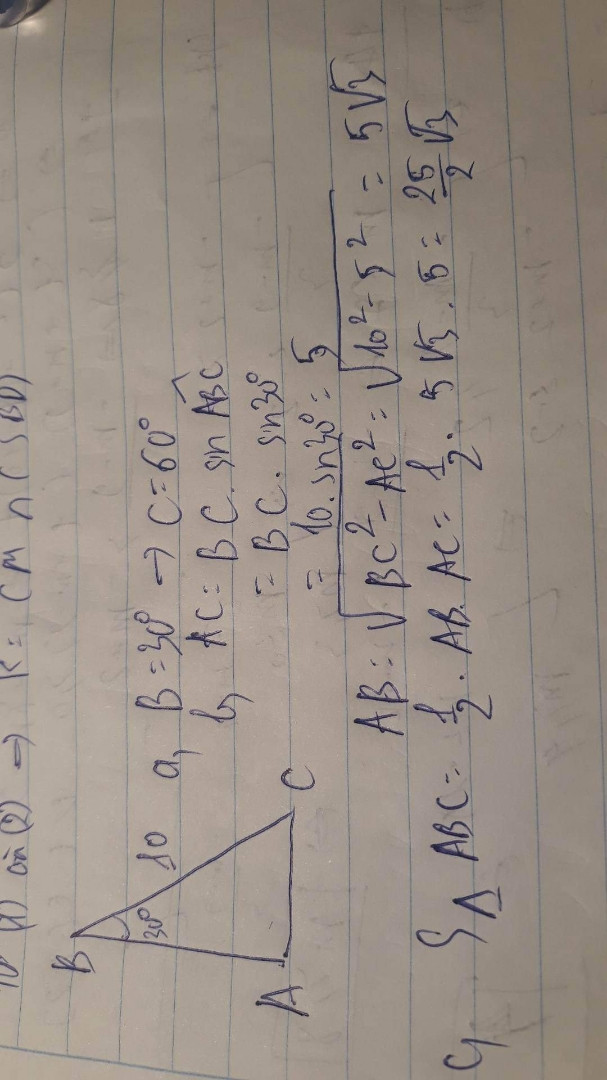 (2) → K = CM ∩ (SBD)
B
30°
10
A
C
a, B = 30° → C = 60°
b, AC = BC . sin ABC
= BC . sin30°
= 10 . sin30° = 5
AB = √BC² - AC² = √10² - 5² = 5√3
c, S△ ABC = 1/2 . AB . AC = 1/2 . 5√3 . 5 = 25/2 √3